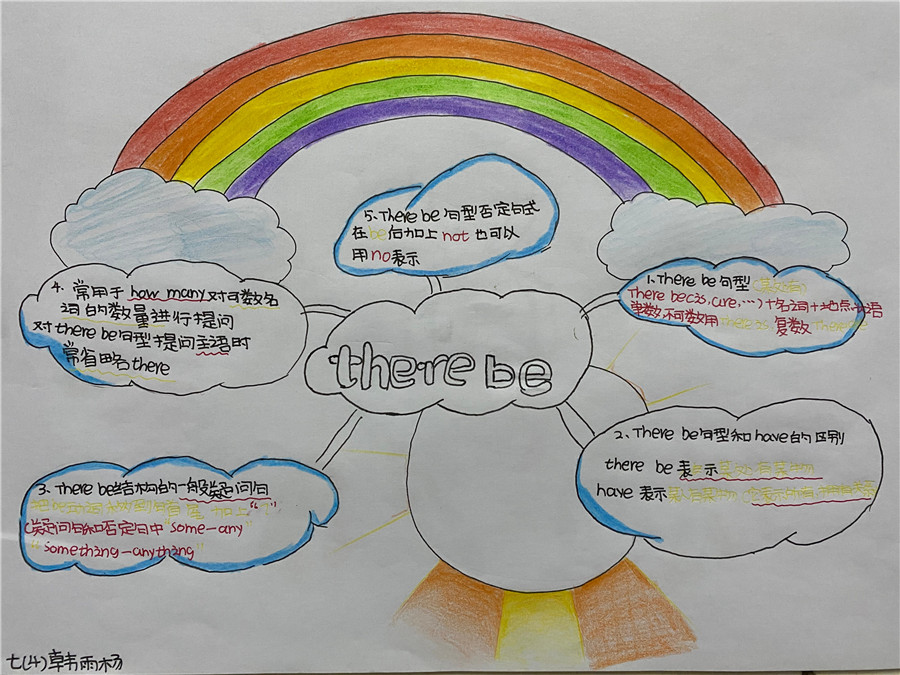 there be
1、There be 句型（某处有）
There be（is、are、…）＋名词＋地点状语
单数，不可数用 there is 复数 There are
2、There be句型和have的区别
there be 表示某处有某物
have 表示某人有某物
3、There be结构的一般疑问句
把be动词 加上“?”
（疑问句和否定句中“some—any”
“something—anything”
4、常用于 how many 对可数名
词的数量进行提问
对there be句型提问主语时
常省略there
5、There be 句型否定句式
在be后加上 not 也可以
用no表示
七(4)韩雨杨